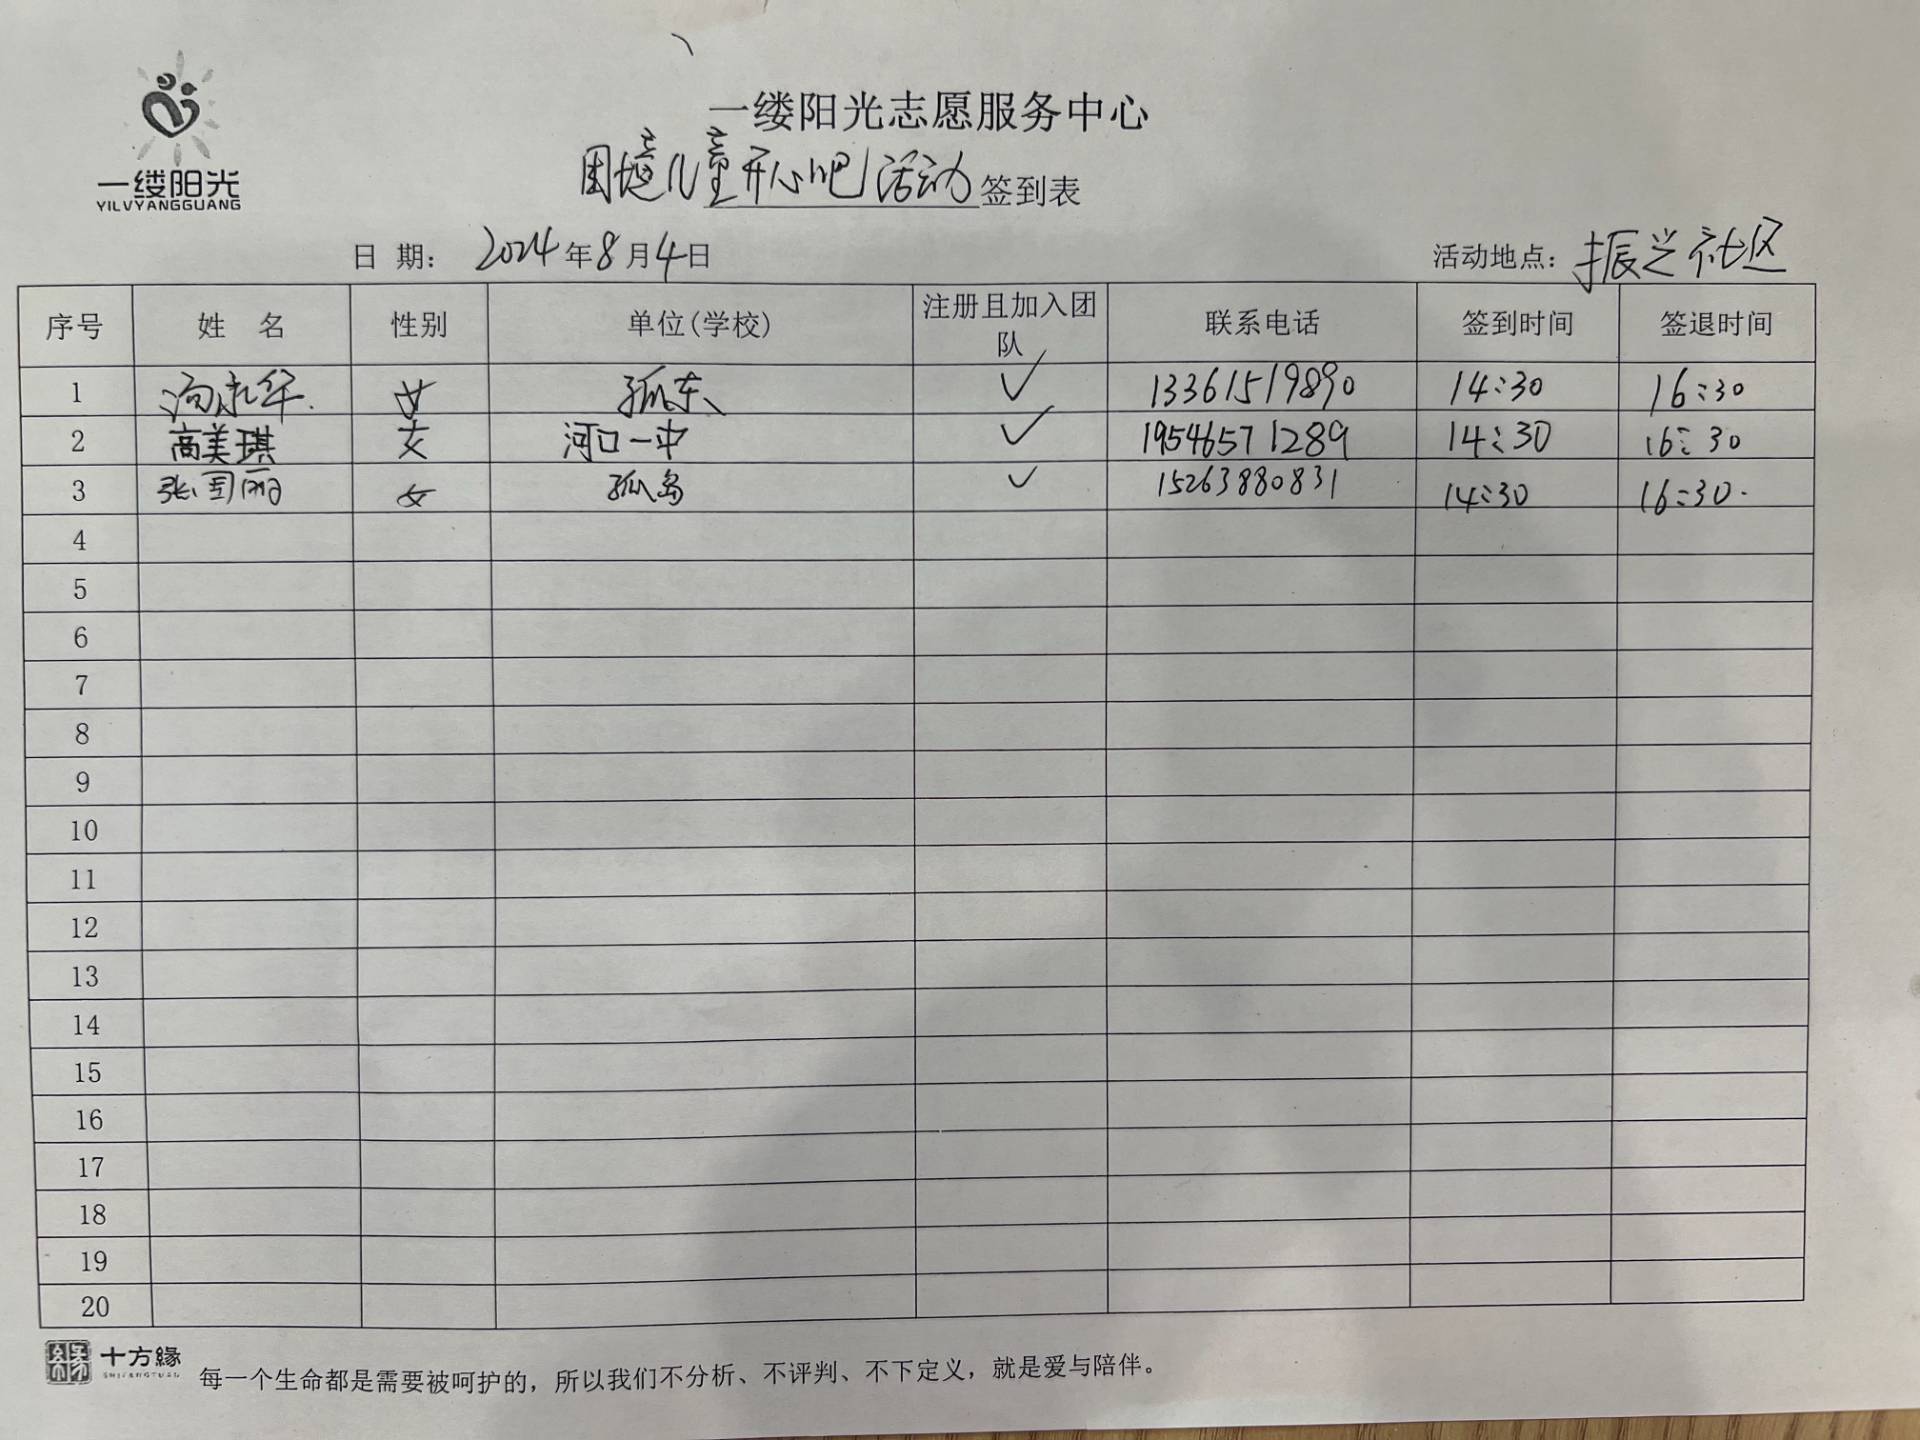 一缕阳光
YILVYANGGUANG
一缕阳光志愿服务中心
困境儿童开心吧活动签到表
日 期： 2024年8月4日
活动地点：振兴社区
序号 姓 名 性别 单位(学校) 注册且加入团队 联系电话 签到时间 签退时间
1 女 孤东 ✓ 13361519890 14:30 16:30
2 高美琪 女 河口一中 ✓ 19546571289 14:30 16:30
3 张国丽 女 孤岛 ✓ 15263880831 14:30 16:30
4
5
6
7
8
9
10
11
12
13
14
15
16
17
18
19
20
十方緣
SHIFANGYUAN
每一个生命都是需要被呵护的，所以我们不分析、不评判、不下定义，就是爱与陪伴。